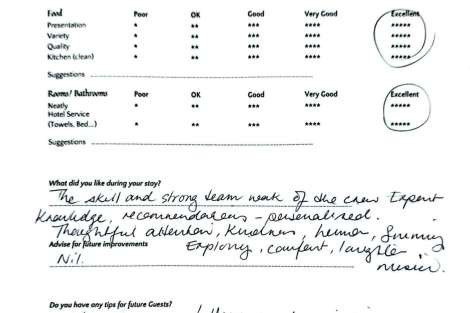 Food Poor OK Good Very Good Excellent
Presentation * ** *** **** *****
Variety * ** *** **** *****
Quality * ** *** **** *****
Kitchen (clean) * ** *** **** *****
Suggestions
Rooms/ Bathrooms Poor OK Good Very Good Excellent
Neatly * ** *** **** *****
Hotel Service
(Towels, Bed...) * ** *** **** *****
Suggestions
What did you like during your stay?
The skill and strong team work of the crew Expert
Knowledge, recommendations - personalised.
Thoughtful attention, Kindness, humor,
Advise for future improvements
Exploring, comfort, laughter,
Nil.
music.
Do you have any tips for future Guests?